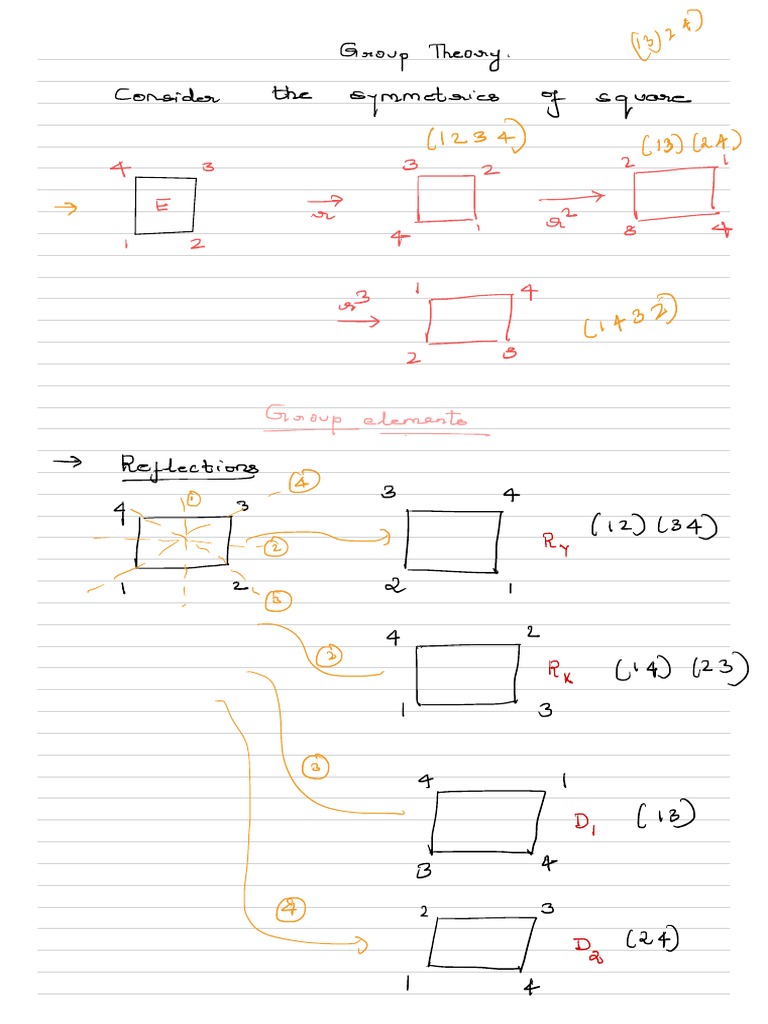 Group Theory.
(13) 24)
Consider the symmetrics of square
(1 2 3 4)
(13) (24)
4 3
3 2
2 1
→ E → r → r²
1 2
4 1
3 4
r³ →
1 4
2 3
(1 4 3 2)
Group elements
→ Reflections
4 ① 3 ④
②
1 2 ③
3 4
2 1
R_y (12) (34)
②
4 2
1 3
R_x (14) (23)
③
4 1
3 4
D₁ (13)
④
2 3
1 4
D₂ (24)